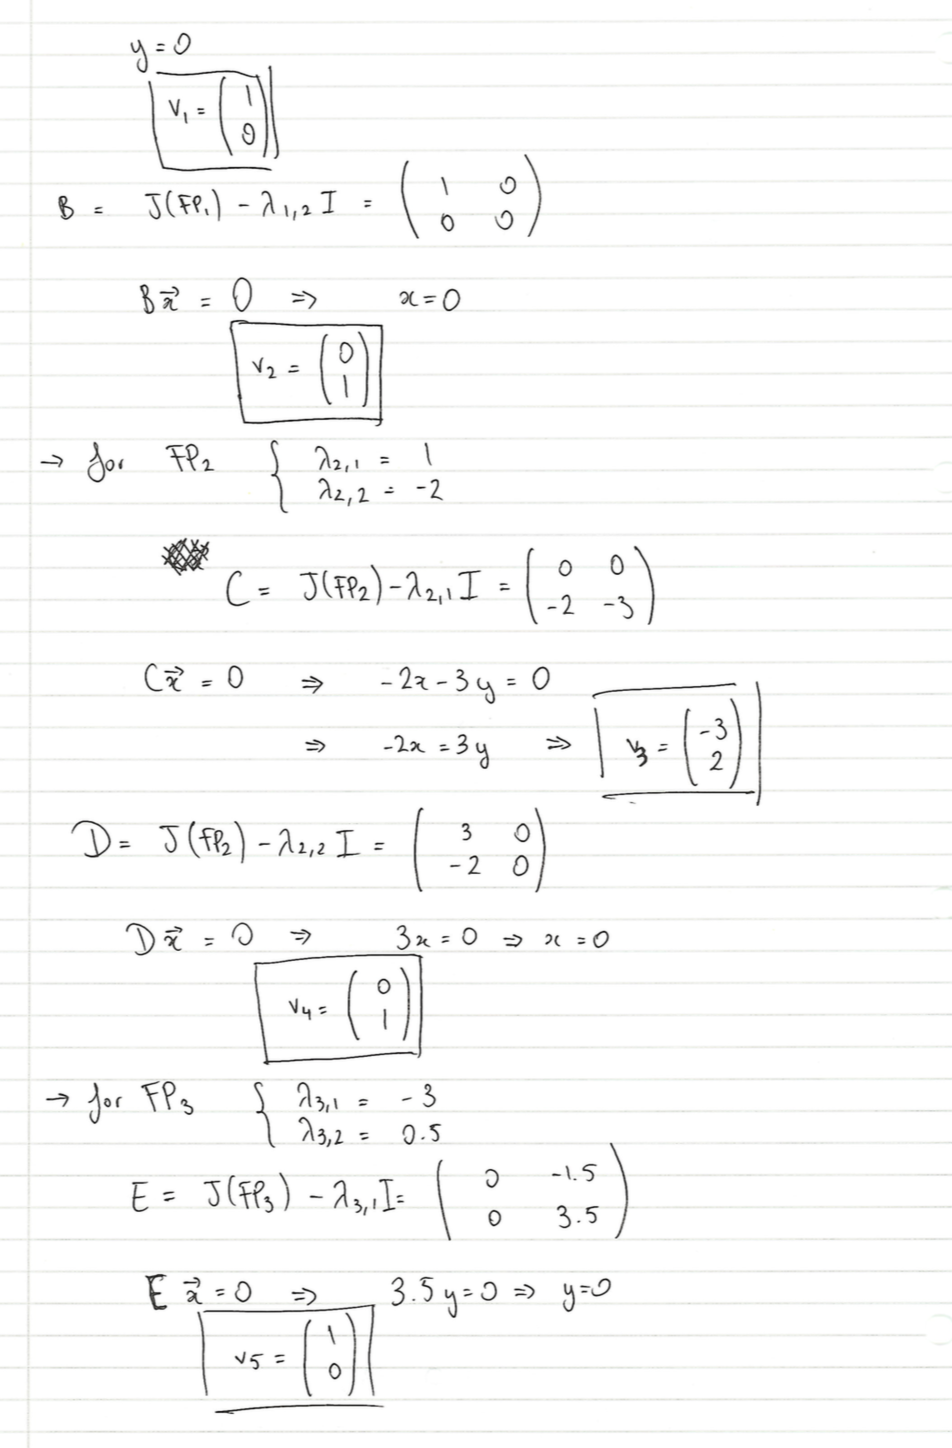 y = 0
v₁ = (1 0)
B = J(FP₁) - λ₁,₂ I = (1 0 0 0)
Bx⃗ = 0 ⇒ x = 0
v₂ = (0 1)
→ for FP₂ { λ₂,₁ = 1
λ₂,₂ = -2
C = J(FP₂) - λ₂,₁ I = (0 0 -2 -3)
Cx⃗ = 0 ⇒ -2x - 3y = 0
⇒ -2x = 3y ⇒ v₃ = (-3 2)
D = J(FP₂) - λ₂,₂ I = (3 0 -2 0)
Dx⃗ = 0 ⇒ 3x = 0 ⇒ x = 0
v₄ = (0 1)
→ for FP₃ { λ₃,₁ = -3
λ₃,₂ = 0.5
E = J(FP₃) - λ₃,₁ I = (0 -1.5 0 3.5)
E x⃗ = 0 ⇒ 3.5y = 0 ⇒ y = 0
v₅ = (1 0)